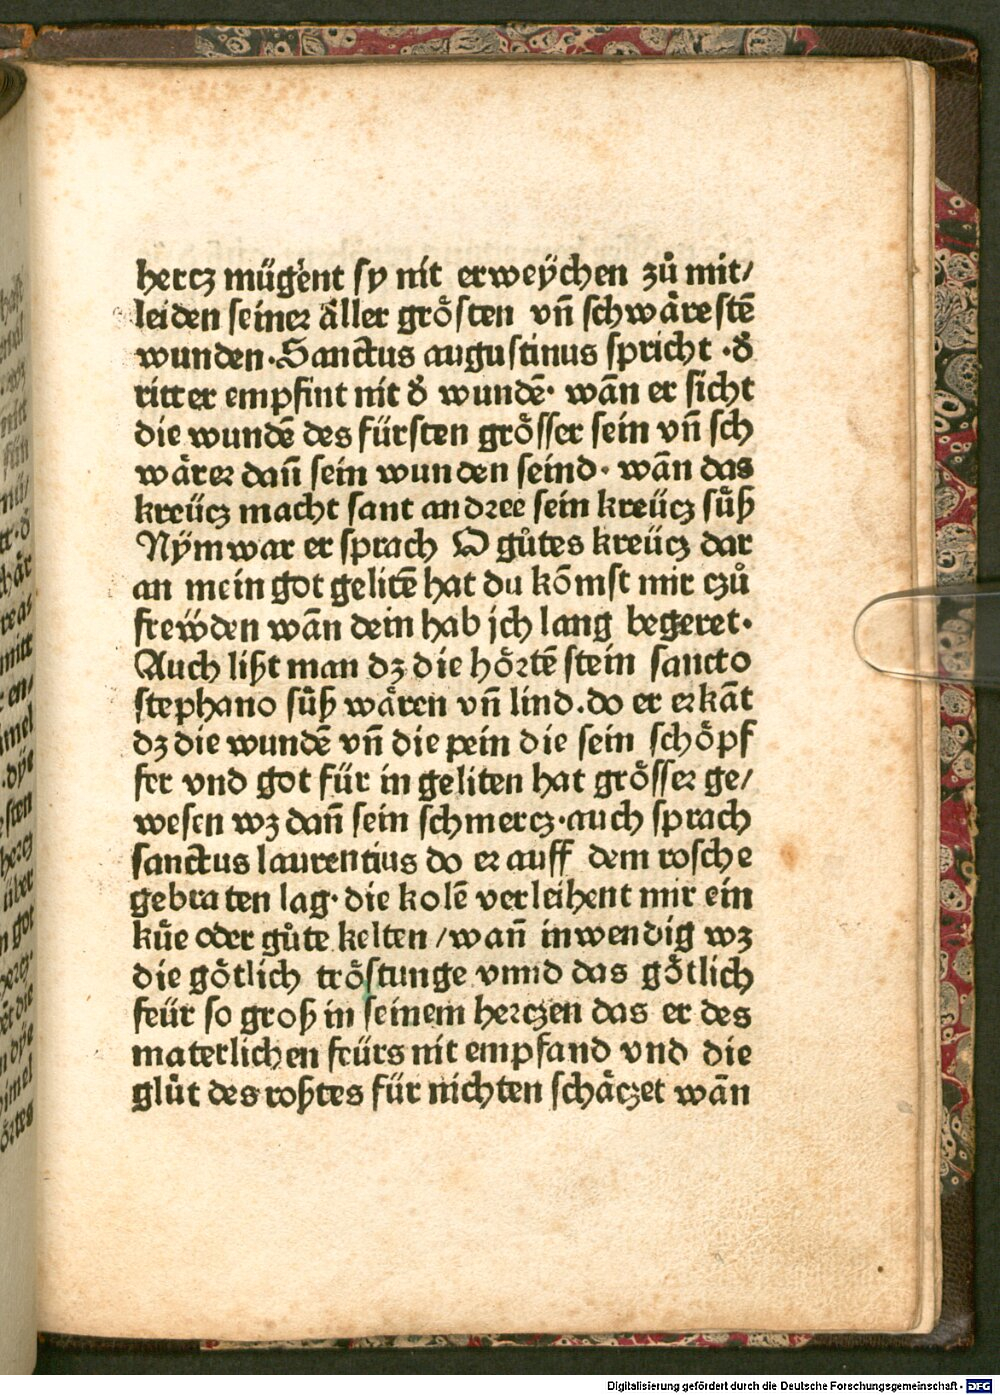 hercz mügent sy nit erweÿchen zů mit/
leiden seiner aͤller groͤsten vn̄ schwaͤrestē
wunden·Sanctus augustinus spricht·d̕
ritter empfint nit d̕ wundē· wān er sicht
die wundē des fürsten groͤsser sein vn̄ sch
waͤrer dan̄ sein wunden seind· wān das
kreücz macht sant andree sein kreücz suͤß
Nÿm war er sprach O gůtes kreücz dar
an mein got gelitē hat du kōmst mir czů
freẅden wān dein hab jch lang begeret·
Auch lißt man dz die hoͤrtē stein sancto
stephano suͤß waͤren vn̄ lind.do er erkāt
dz die wundē vn̄ die pein die sein schoͤpf
fer vnd got für in geliten hat groͤsser ge/
wesen wz dan̄ sein schmercz·auch sprach
sanctus laurentius do er auff dem rosche
gebraten lag· die kolē verleihent mir ein
kuͤe oder gůte kelten /wan̄ inwendig wz
die goͤtlich troͤstunge vnnd das goͤtlich
feür so groß in seinem herczen das er des
materlichen feürs nit empfand vnd die
gluͤt des roßtes für nichten schaͤczet wān
Digitalisierung gefördert durch die Deutsche Forschungsgemeinschaft - DFG